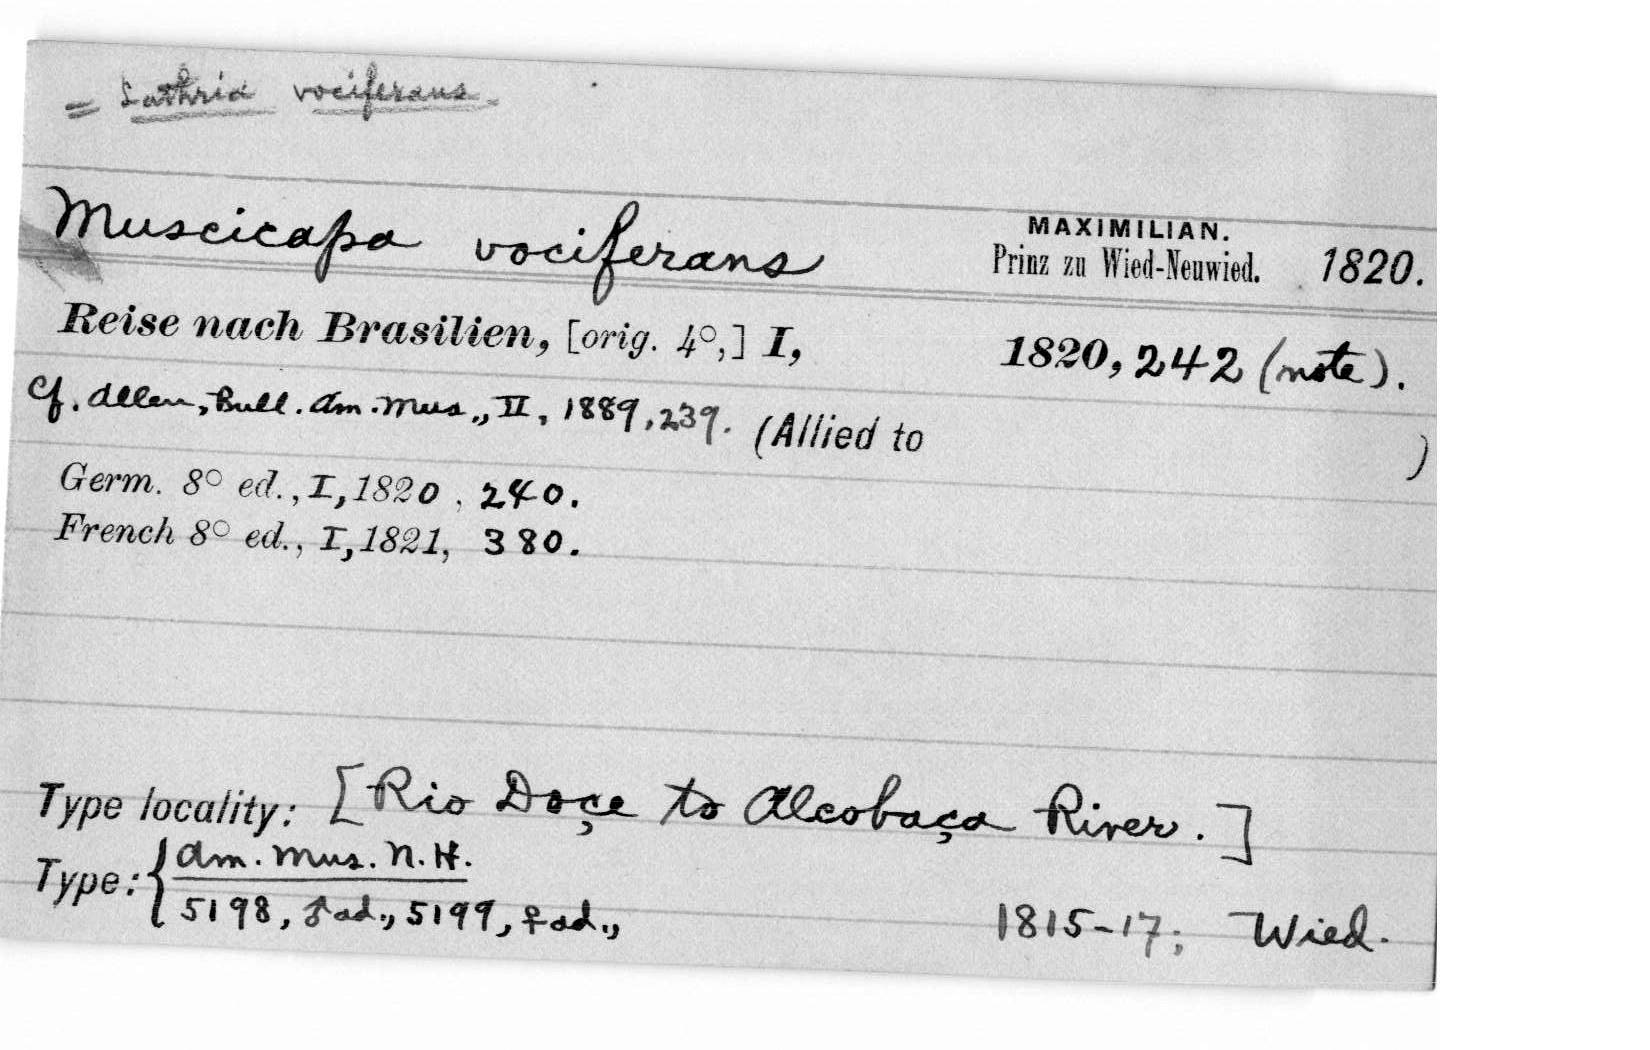 = Lathria vociferans.
Muscicapa vociferans MAXIMILIAN. Prinz zu Wied-Neuwied. 1820.
Reise nach Brasilien, [orig. 4°,] I, 1820, 242 (note).
Cf. Allen, Bull. Am. Mus., II, 1889, 239. (Allied to )
Germ. 8° ed., I, 1820, 240.
French 8° ed., I, 1821, 380.
Type locality: [Rio Doçe to Alcobaça River.]
Type: { Am. Mus. N. H.
5198, ♂ ad., 5199, ♀ ad., 1815-17; Wied.